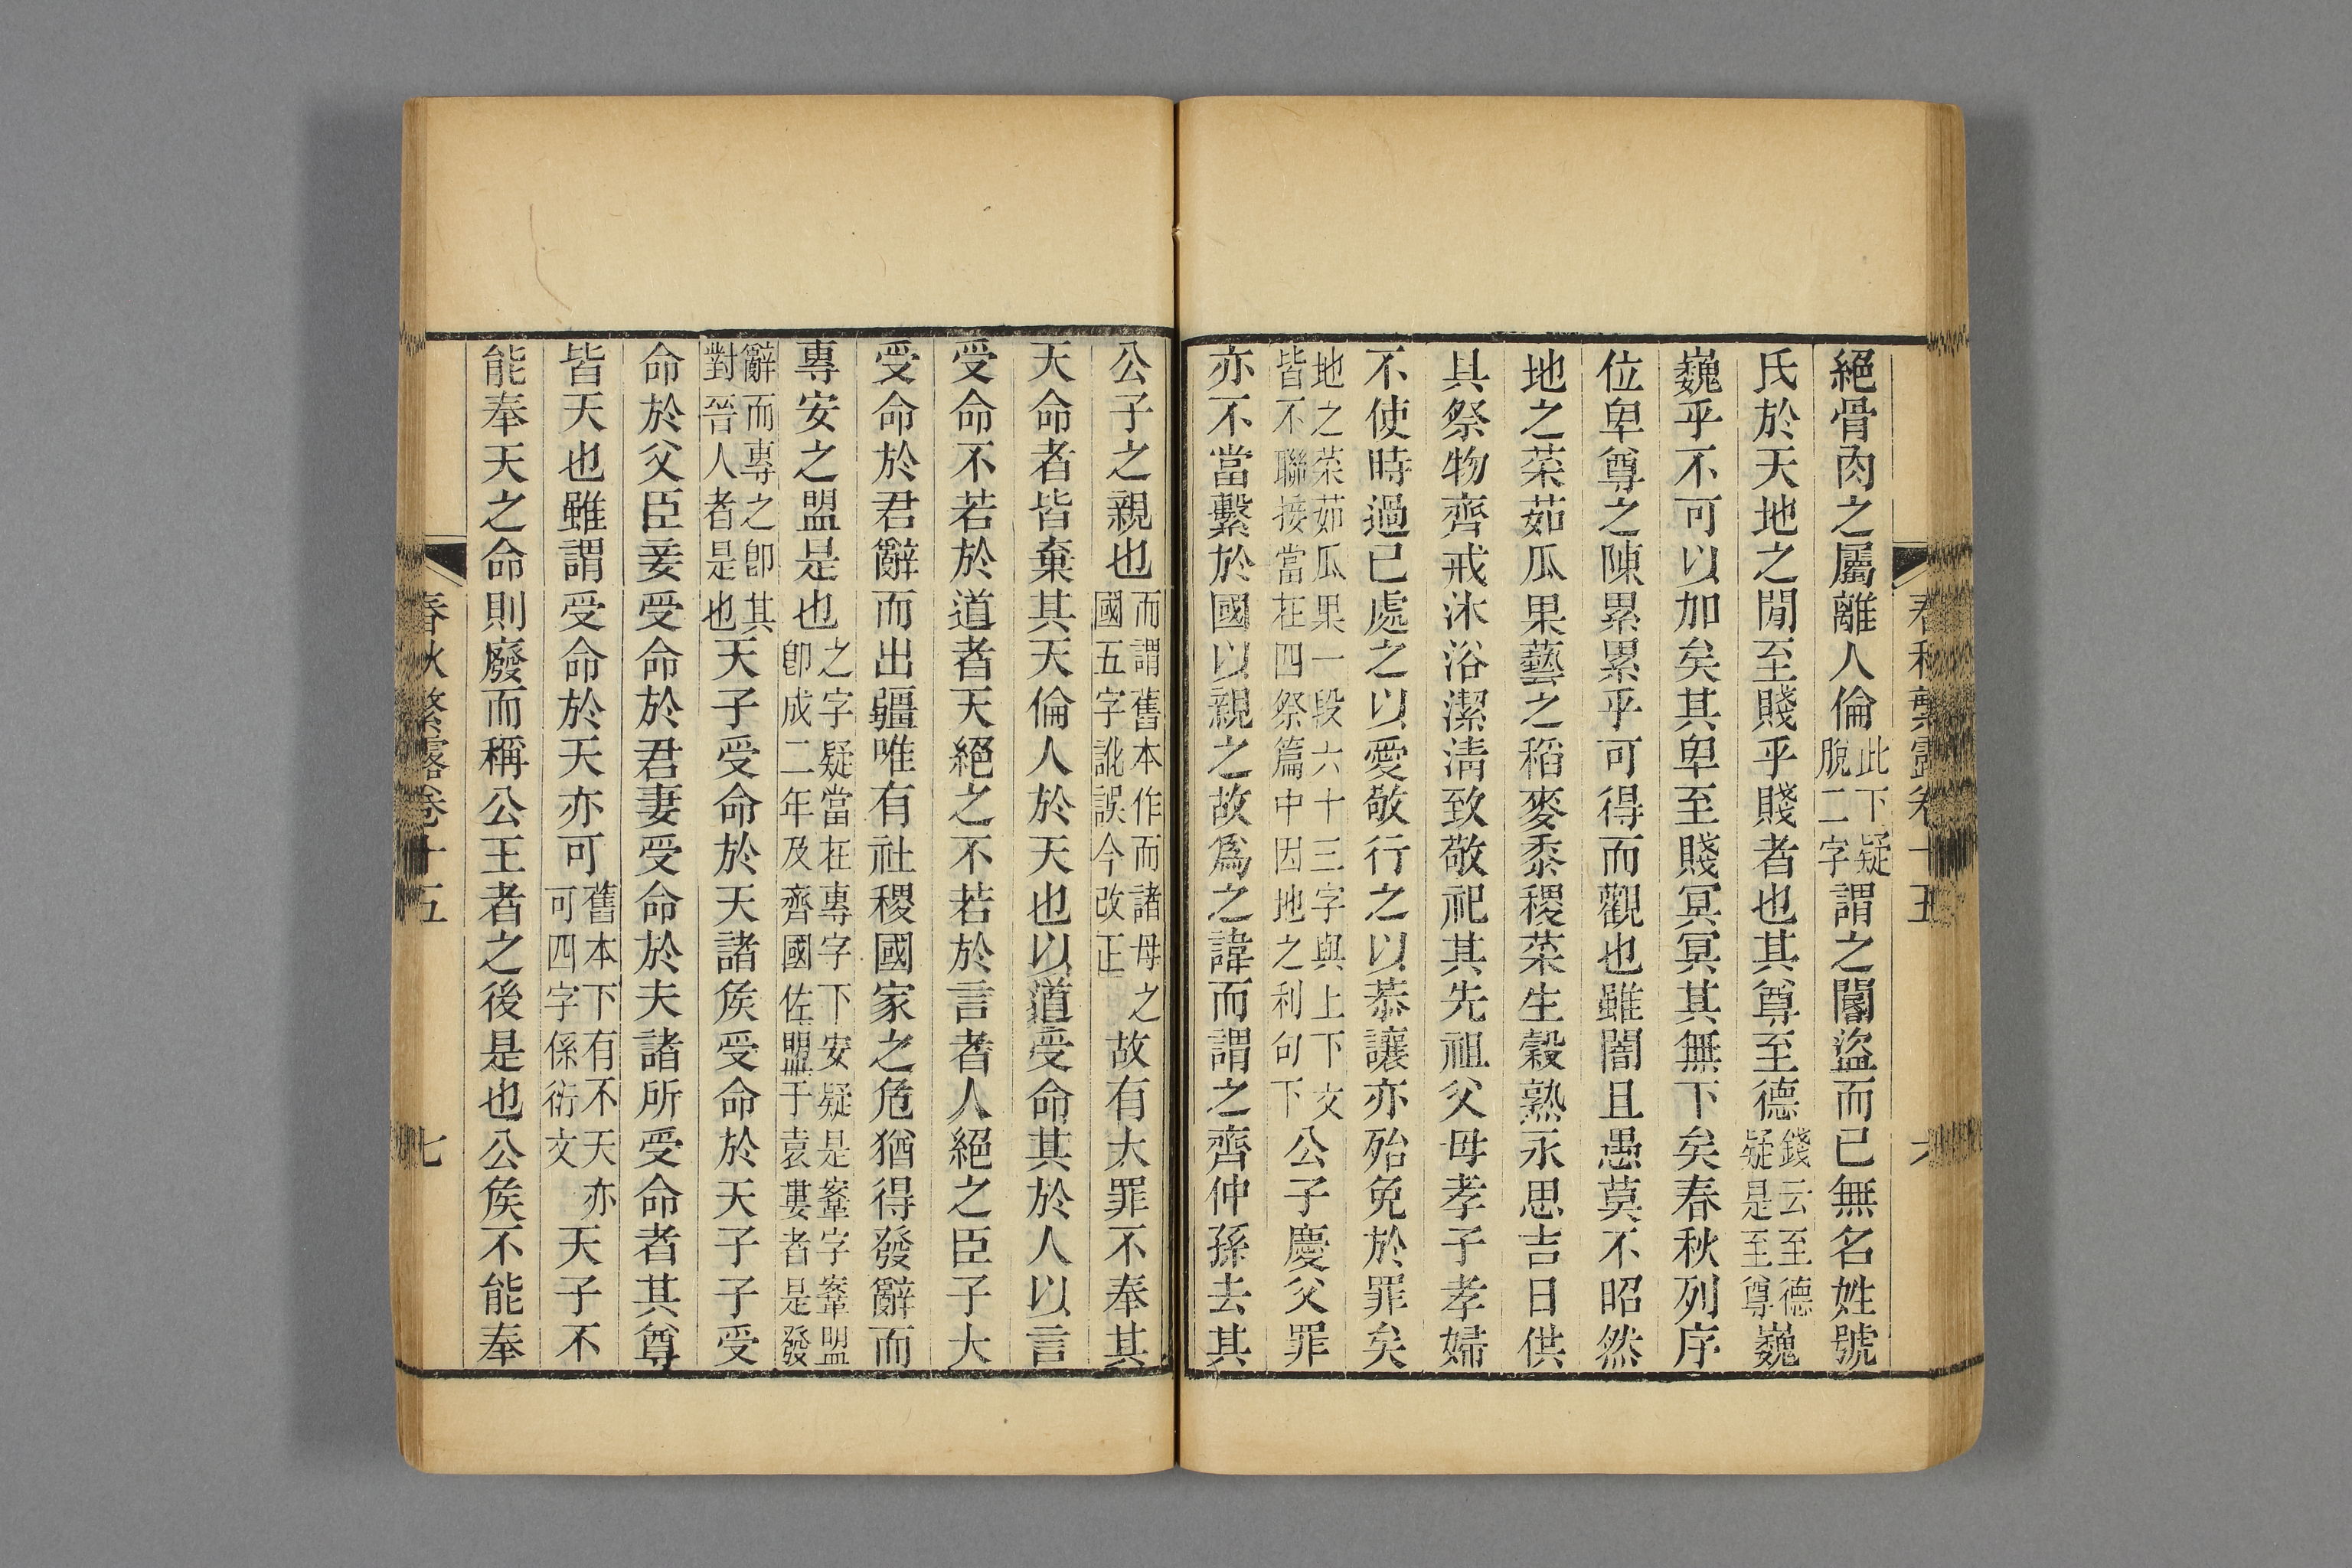 春秋繁露卷十五
絕骨肉之屬離人倫此下疑脫二字謂之閽盜而已無名姓號
氏於天地之閒至賤乎賤者也其尊至德錢云至德疑是至尊巍
巍乎不可以加矣其卑至賤冥冥其無下矣春秋列序
位卑尊之陳累累乎可得而觀也雖闇且愚莫不昭然
地之菜茹瓜果藝之稻麥黍稷菜生穀熟永思吉日供
具祭物齊戒沐浴潔清致敬祀其先祖父母孝子孝婦
不使時過已處之以愛敬行之以恭讓亦殆免於罪矣
地之菜茹瓜果一段六十三字與上下文皆不聯接當在四祭篇中因地之利句下公子慶父罪
亦不當繫於國以親之故為之諱而謂之齊仲孫去其
公子之親也而謂舊本作而諸母之國五字訛誤今改正故有大罪不奉其
天命者皆棄其天倫人於天也以道受命其於人以言
受命不若於道者天絕之不若於言者人絕之臣子大
受命於君辭而出疆唯有社稷國家之危猶得發辭而
專安之盟是也之字疑當在專字下安疑是鞌字鞌盟卽成二年及齊國佐盟于袁婁者是發
辭而專之卽其對晉人者是也天子受命於天諸侯受命於天子子受
命於父臣妾受命於君妻受命於夫諸所受命者其尊
皆天也雖謂受命於天亦可舊本下有不天亦可四字係衍文天子不
能奉天之命則廢而稱公王者之後是也公侯不能奉
春秋繁露卷十五
七